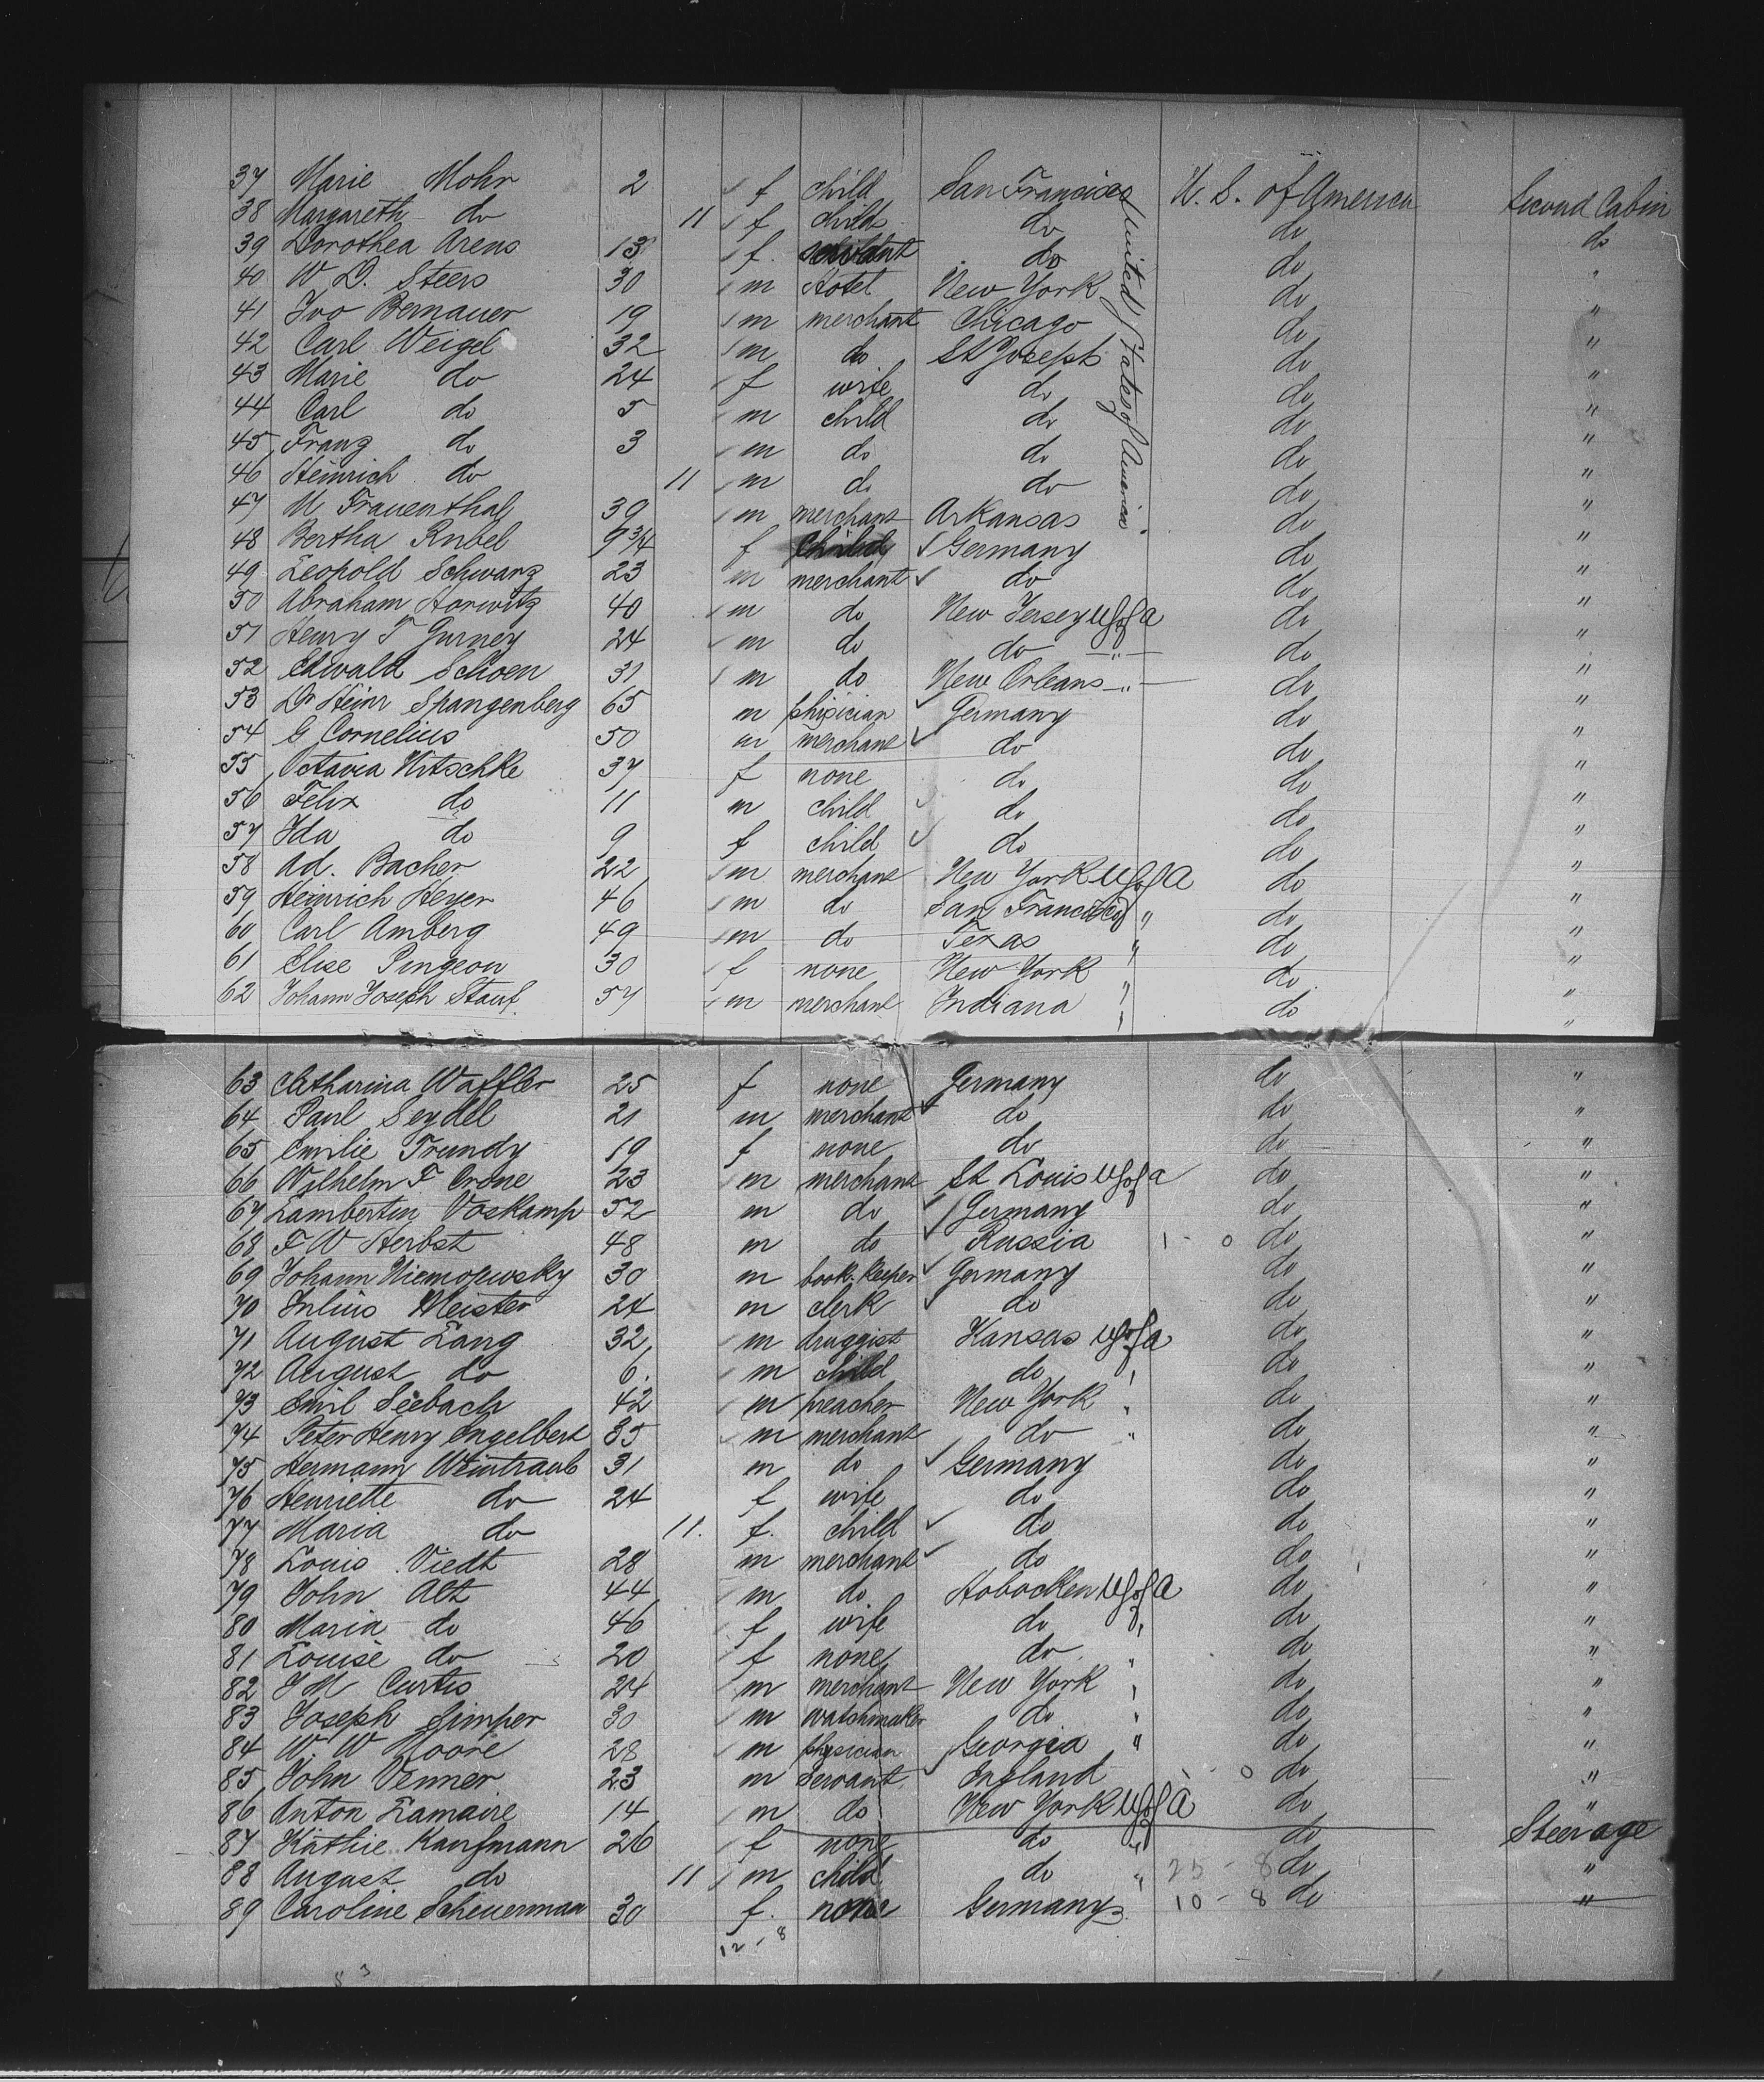 37 Marie Mohr 2 f child San Francisco U. S. of America Second Cabin
38 Margareth do 11 f child do do do
39 Dorothea Arens 13 f. do do "
40 W D. Steers 30 m Hotel New York do "
41 Ivo Bernauer 19 m merchant Chicago do "
42 Carl Weigel 32 m do St Joseph do "
43 Marie do 24 f wife do do "
44 Carl do 5 m child do do "
45 Franz do 3 m do do do "
46 Heinrich do 11 m do do do "
United States of America
47 M Frauenthal 39 m merchant Arkansas do "
48 Bertha Rubel 9 3/4 f child Germany do "
49 Leopold Schwarz 23 m merchant do do "
50 Abraham Horwitz 40 m do New Jersey U S of A do "
51 Henry T Gurney 24 m do do " do "
52 Edwald Schoen 31 m do New Orleans " do "
53 Dr Heinr Spangenberg 65 m phisician Germany do "
54 G Cornelius 50 m merchant do do "
55 Octavia Nitschke 37 f none do do "
56 Felix do 11 m child do do "
57 Ida do 9 f child do do "
58 Ad. Bacher 22 m merchant New York U S of A do "
59 Heinrich Heyer 46 m do San Francisco " do "
60 Carl Amberg 49 m do Texas " do "
61 Elise Pingeon 30 f none New York " do "
62 Johann Joseph Stauf 57 m merchant Indiana " do "
63 Catharina Waffler 25 f none Germany do "
64 Paul Seydel 21 m merchant do do "
65 Emilie Trundy 19 f none do do "
66 Wilhelm F Crone 23 m merchant St Louis U S of A do "
67 Lambertin Voskamp 52 m do Germany do "
68 F W Herbst 48 m do Russia 1 - 0 do "
69 Johann Niemojewsky 30 m book-keeper Germany do "
70 Julius Meister 24 m clerk do do "
71 August Lang 32 m druggist Kansas U S of A do "
72 August do 6 m child do " do "
73 Emil Seebach 42 m preacher New York " do "
74 Peter Henry Engelbert 35 m merchant do " do "
75 Hermann Weintraub 31 m do Germany do "
76 Henriette do 24 f wife do do "
77 Maria do 11. f. child do do "
78 Louis Viedt 28 m merchant do do "
79 John Alt 44 m do Hobocken U S of A do "
80 Maria do 46 f wife do " do "
81 Louise do 20 f none do " do "
82 J M Curtis 24 m merchant New York " do "
83 Joseph Simper 30 m watchmaker do " do "
84 W. W Moore 28 m physician Georgia " do "
85 John Venner 23 m Servant England 0 do "
86 Anton Lamaire 14 m do New York U S of A do "
87 Käthie Kaufmann 26 f none do " do Steerage
88 August do 11 m child do " 25 - 8 do "
89 Caroline Scheuerman 30 f. none Germany 10 - 8 do "
12 - 8
83